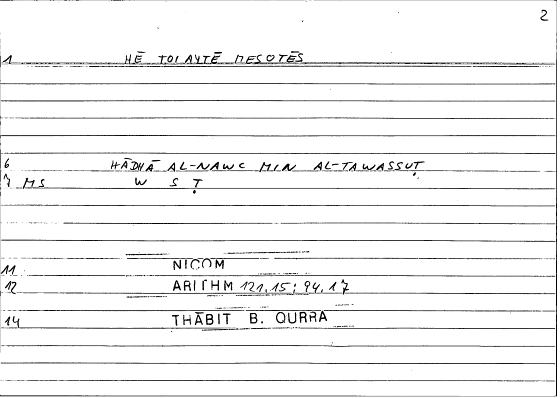 2
1 HĒ TOIAYTĒ MESOTĒS
6 HĀDHĀ AL-NAWC MIN AL-TAWASSUṬ
7 MS W S Ṭ
11 NICOM
12 ARITHM 121,15; 94,17
14 THĀBIT B. QURRA